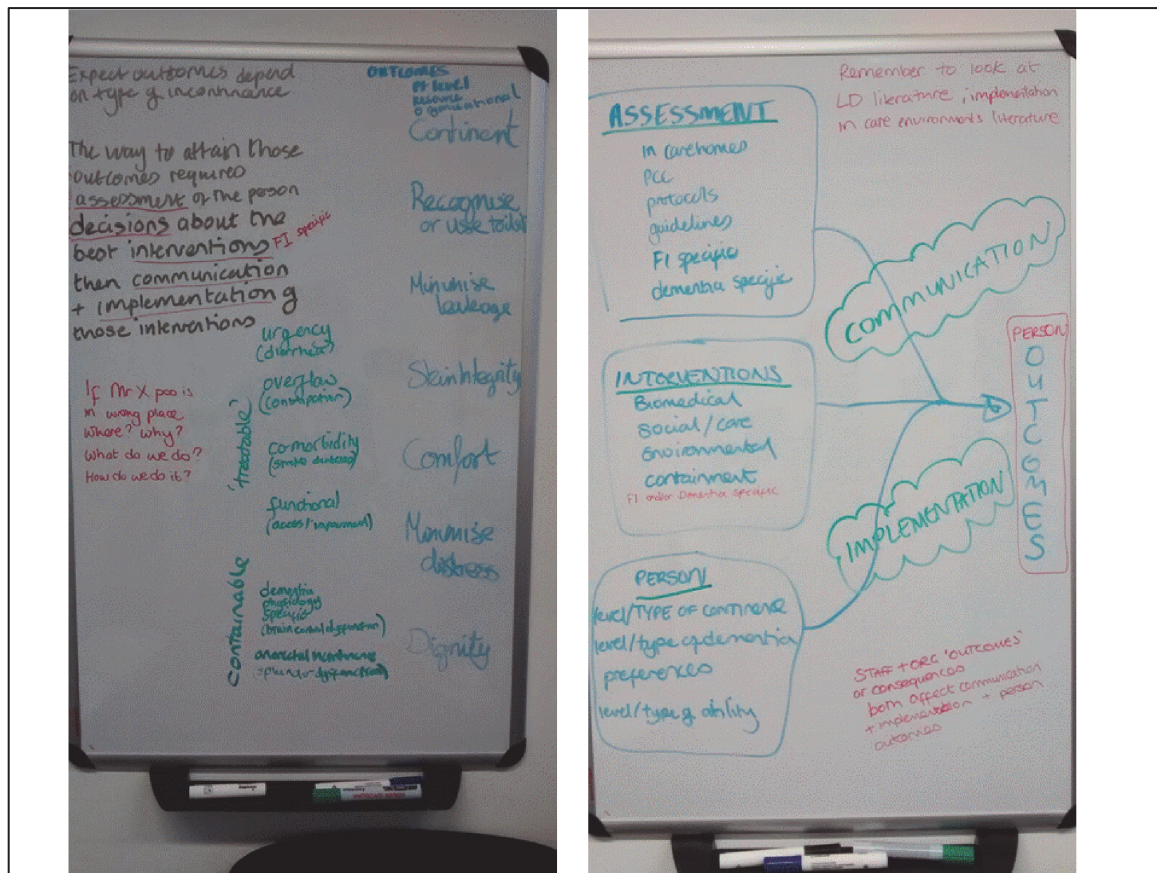 Expect outcomes depend
on type of incontinence
The way to attain those
outcomes required
assessment of the person
decisions about the
best interventions FI specific
then communication
+ implementation of
those interventions
If Mr X poo is
in wrong place
Where? Why?
What do we do?
How do we do it?
'treatable'
urgency
(diarrhea)
overflow
(constipation)
comorbidity
functional
(access/impairment)
containable
dementia
physiology
specific
(brain control dysfunction)
anorectal incontinence
OUTCOMES
Pt level
resource
organisational
Continent
Recognise
or use toilet
Minimise
leakage
Skin Integrity
Comfort
Minimise
distress
Dignity
ASSESSMENT
in carehomes
PCC
protocols
guidelines
FI specific
dementia specific
INTERVENTIONS
Biomedical
social/care
environmental
containment
FI and/or Dementia specific
PERSON
level/TYPE OF CONTINENCE
level/type of dementia
preferences
level/type of ability
Remember to look at
LD literature, implementation
in care environments literature
COMMUNICATION
IMPLEMENTATION
PERSON
OUTCOMES
STAFF + ORG 'OUTCOMES'
or consequences
both affect communication
+ implementation + person
outcomes